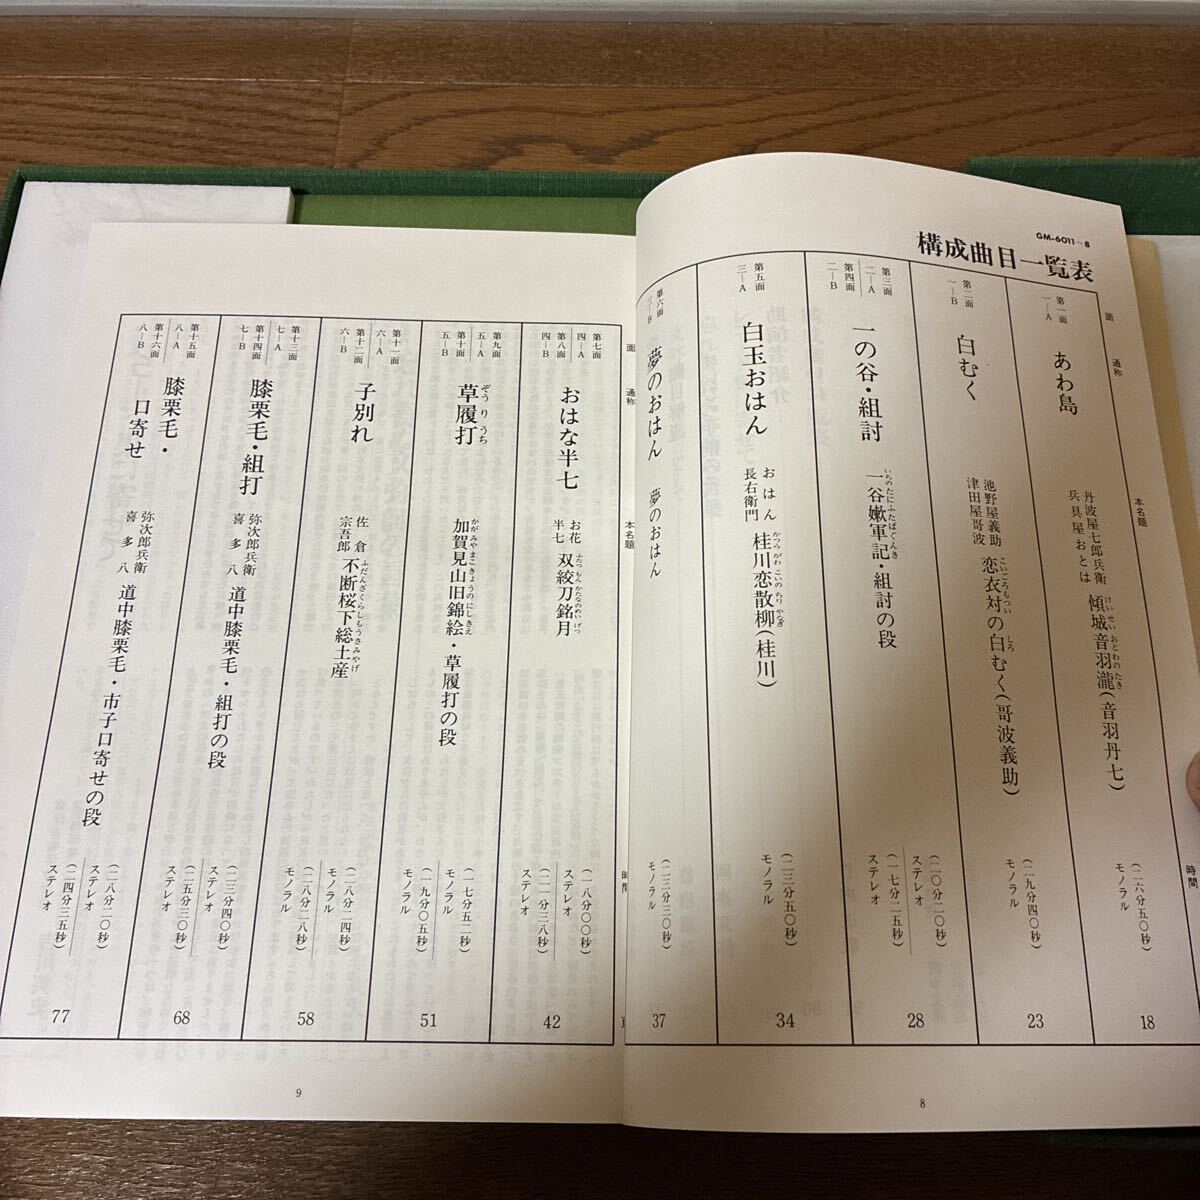 GM-6011~8
構成曲目一覧表
面
通称
本名題
時間
第一面
一―A
あわ島
丹波屋七郎兵衛
兵具屋おとは
傾城音羽瀧(音羽丹七)
けいせいおとわのたき
(二六分五〇秒)
モノラル
18
第二面
一―B
白むく
池野屋義助
津田屋哥波
恋衣対の白むく(哥波義助)
こいごろもつい
しろ
(二九分四〇秒)
モノラル
23
第三面
二―A
第四面
二―B
一の谷・組討
一谷嫩軍記・組討の段
いちのたにふたばぐんき
(二〇分二〇秒)
ステレオ
(一七分二五秒)
ステレオ
28
第五面
三―A
白玉おはん
おはん
長右衛門
桂川恋散柳(桂川)
かつらがわこいのちりやなぎ
(二三分五〇秒)
モノラル
34
第六面
三―B
夢のおはん
夢のおはん
(二三分三〇秒)
モノラル
37
8
面
通称
本名題
時間
第七面
四―A
第八面
四―B
おはな半七
お花
半七
双紋刀銘月
ふたつもんかたなのめいげつ
(一八分〇〇秒)
ステレオ
(二一分三八秒)
ステレオ
42
第九面
五―A
第十面
五―B
草履打
ぞうりうち
加賀見山旧錦絵・草履打の段
かがみやまこきょうのにしきえ
(一七分五二秒)
モノラル
(一九分〇五秒)
モノラル
51
第十一面
六―A
第十二面
六―B
子別れ
佐倉
宗吾郎
不断桜下総土産
ふだんざくらしもうさみやげ
(二八分二四秒)
モノラル
(二八分二八秒)
モノラル
58
第十三面
七―A
第十四面
七―B
膝栗毛・組打
弥次郎兵衛
喜多八
道中膝栗毛・組打の段
(二三分四〇秒)
ステレオ
(二五分三〇秒)
ステレオ
68
第十五面
八―A
第十六面
八―B
膝栗毛・
口寄せ
弥次郎兵衛
喜多八
道中膝栗毛・市子口寄せの段
(二八分二〇秒)
ステレオ
(二四分三五秒)
ステレオ
77
9